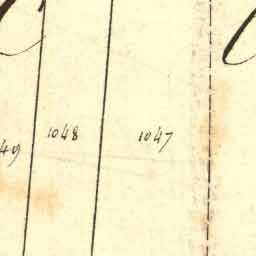 1048
1047
49